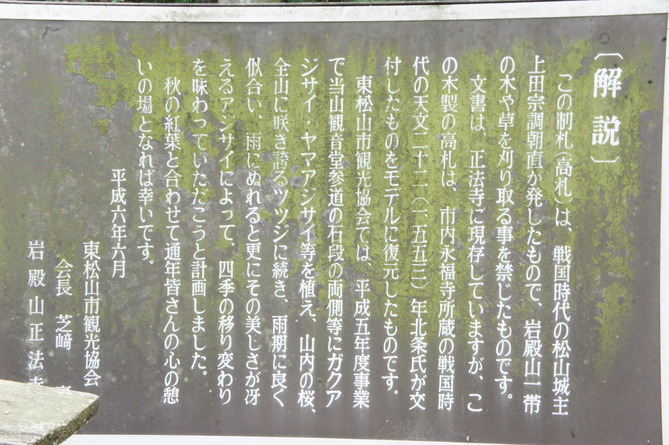 〔解説〕
この制札(高札)は、戦国時代の松山城主
上田宗調朝直が発したもので、岩殿山一帯
の木や草を刈り取る事を禁じたものです。
文書は、正法寺に現存していますが、こ
の木製の高札は、市内永福寺所蔵の戦国時
代の天文二十二(一五五三)年北条氏が交
付したものをモデルに復元したものです。
東松山市観光協会では、平成五年度事業
で当山観音堂参道の石段の両側等にガクア
ジサイ・ヤマアジサイ等を植え、山内の桜、
全山に咲き誇るツツジに続き、雨期に良く
似合い、雨にぬれると更にその美しさが冴
えるアジサイによって、四季の移り変わり
を味わっていただこうと計画しました。
秋の紅葉と合わせて通年皆さんの心の憩
いの場となれば幸いです。
平成六年六月
東松山市観光協会
会長 芝﨑
岩殿山正法寺